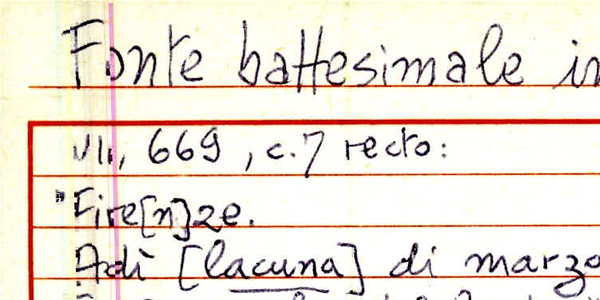 Fonte battesimale in
VII, 669, c.7 recto:
"Fire[n]ze.
Adì [lacuna] di marzo